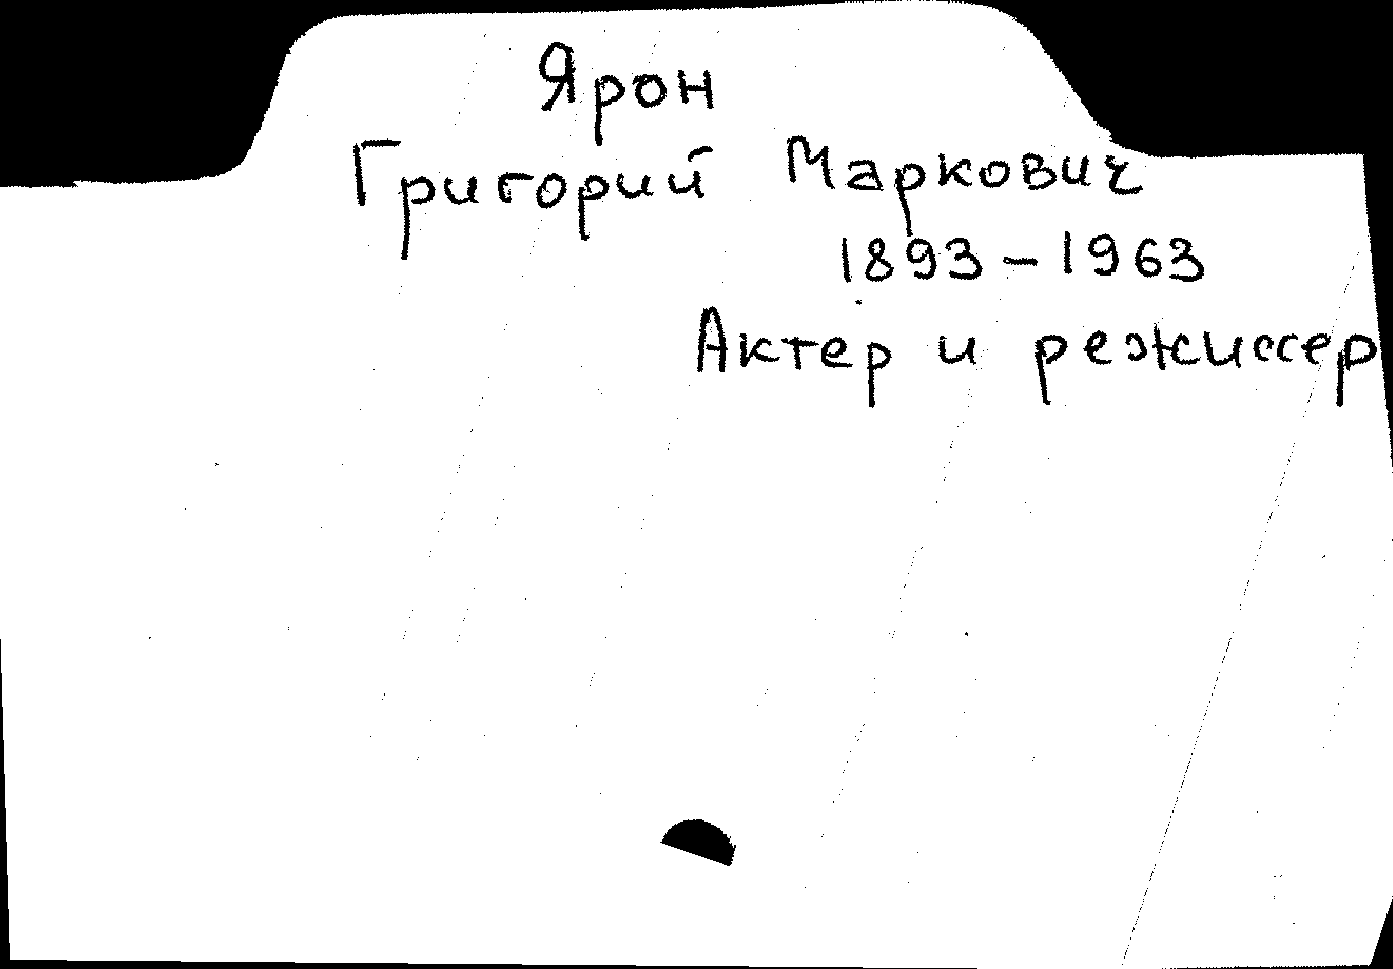 Ярон
Григорий Маркович
1893-1963
Актер и режиссер